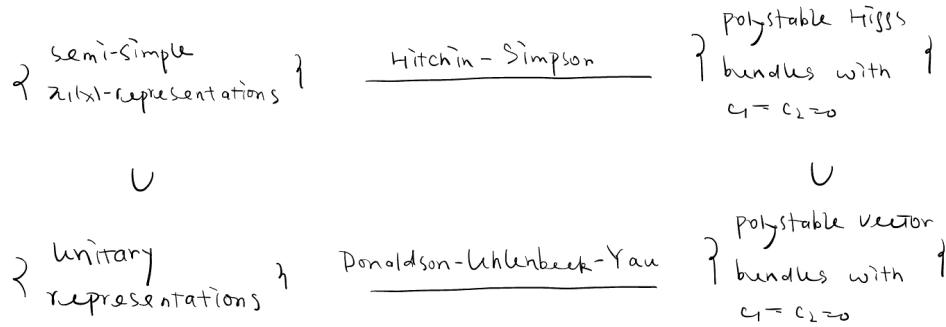 { semi-simple π₁(X)-representations } Hitchin - Simpson { polystable Higgs bundles with c₁ = c₂ = 0 }
∪ ∪
{ unitary representations } Donaldson-Uhlenbeck-Yau { polystable vector bundles with c₁ = c₂ = 0 }